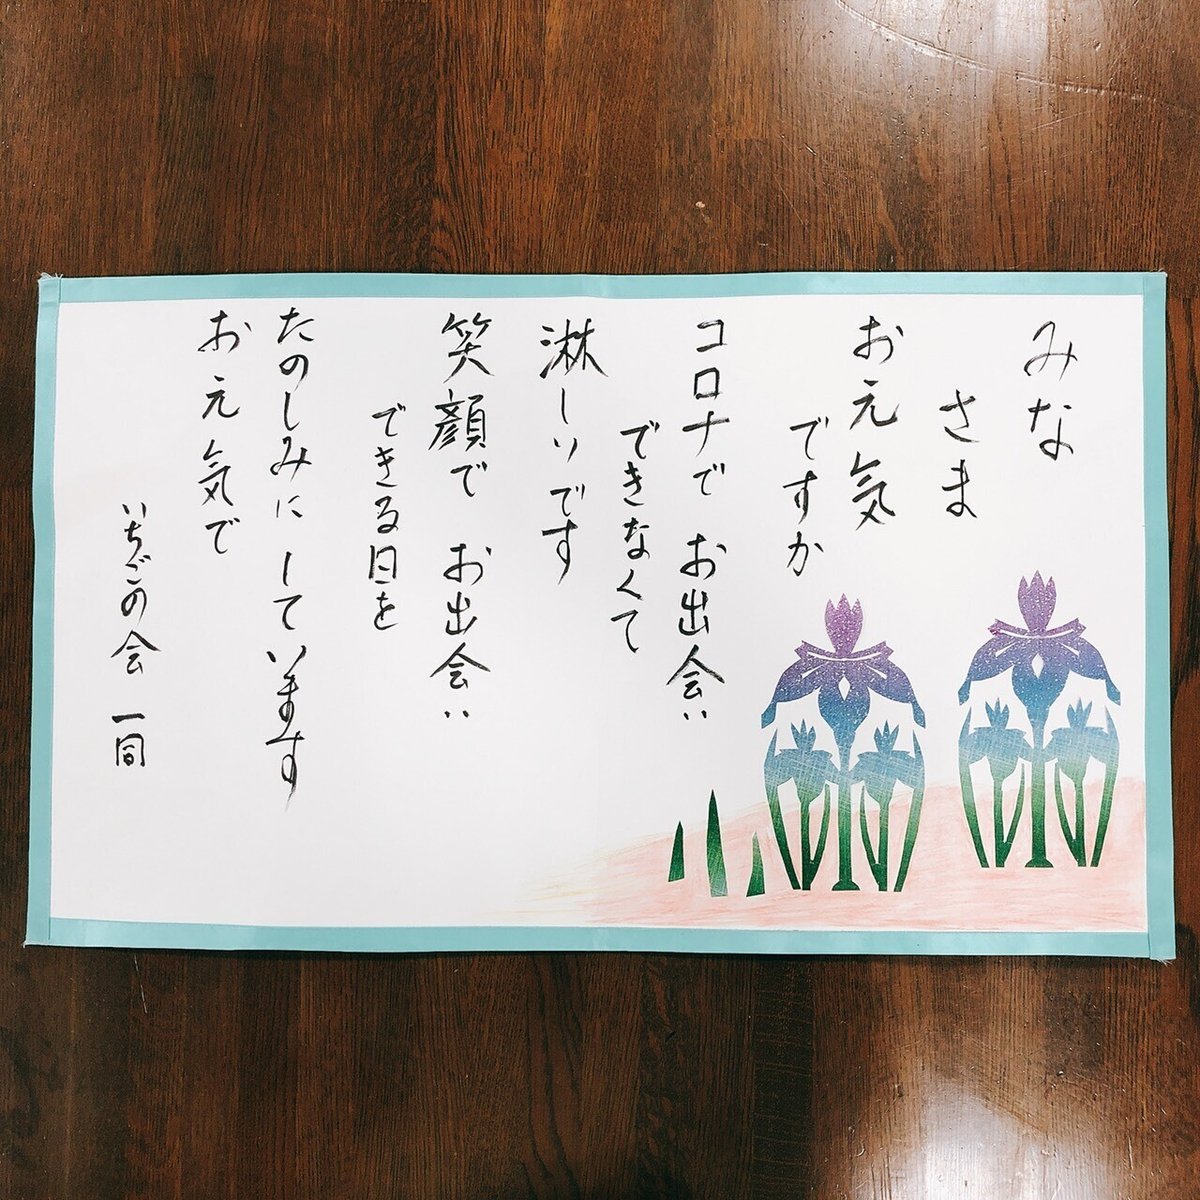 みな
さま
お元気
ですか
コロナで お出会い
できなくて
淋しいです
笑顔で お出会い
できる日を
たのしみに して います
お元気で
いちごの会 一同